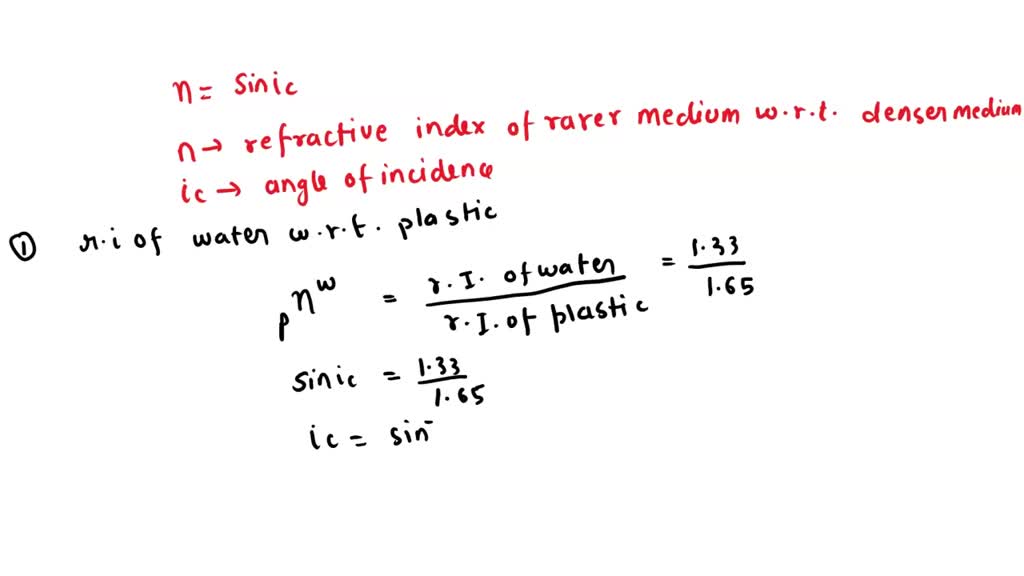 n = sin ic
n → refractive index of rarer medium w.r.t. denser medium
ic → angle of incidence
① r.i of water w.r.t. plastic
pηw = r.I. of water / r.I. of plastic = 1.33 / 1.65
sin ic = 1.33 / 1.65
ic = sin-